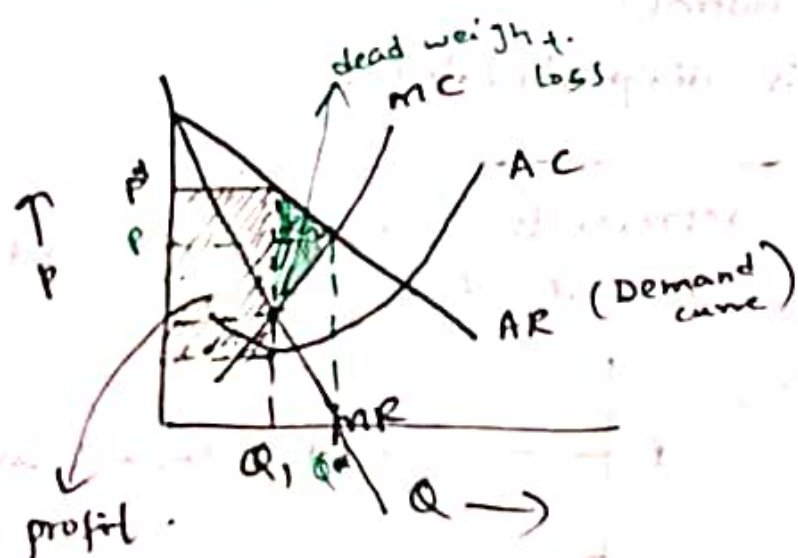 dead weight.
loss
MC
AC
P*
P
↑
P
AR (Demand
curve)
MR
Q₁ Q*
Q →
profit.